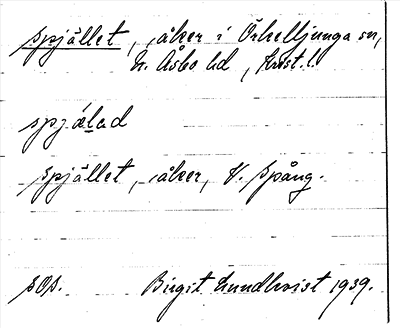 spjället, åker i Örkelljunga sn,
N. Åsbo hd, Krist. l.
spjälad
spjället, åker, V. Spång.
sos.
Birgit Lundkvist 1939.